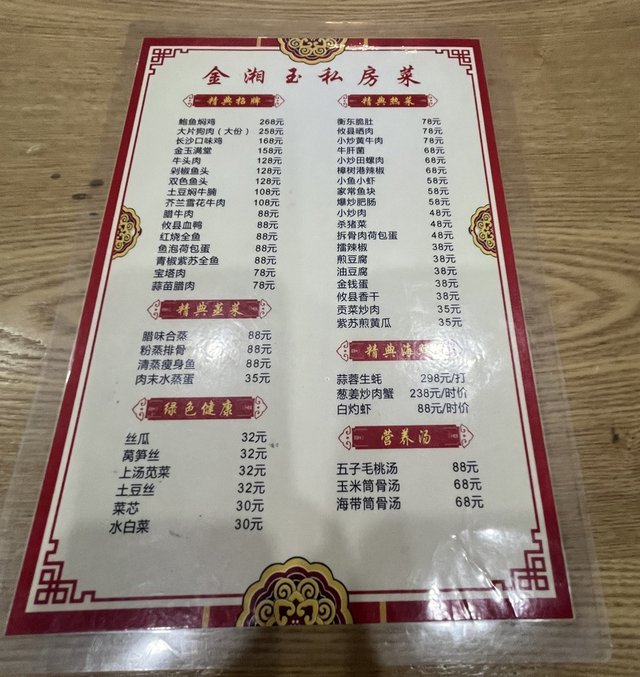 金湘玉私房菜
精典招牌
鲍鱼焖鸡 268元
大片狗肉（大份） 258元
长沙口味鸡 168元
金玉满堂 158元
牛头肉 128元
剁椒鱼头 128元
双色鱼头 128元
土豆焖牛腩 108元
芥兰雪花牛肉 108元
腊牛肉 88元
攸县血鸭 88元
红烧全鱼 88元
鱼泡荷包蛋 88元
青椒紫苏全鱼 88元
宝塔肉 78元
蒜苗腊肉 78元
精典蒸菜
腊味合蒸 88元
粉蒸排骨 88元
清蒸瘦身鱼 88元
肉末水蒸蛋 35元
绿色健康
丝瓜 32元
莴笋丝 32元
上汤苋菜 32元
土豆丝 32元
菜芯 30元
水白菜 30元
精典热菜
衡东脆肚 78元
攸县晒肉 78元
小炒黄牛肉 78元
牛肝菌 68元
小炒田螺肉 68元
樟树港辣椒 68元
小鱼小虾 58元
家常鱼块 58元
爆炒肥肠 58元
小炒肉 48元
杀猪菜 48元
拆骨肉荷包蛋 48元
擂辣椒 38元
煎豆腐 38元
油豆腐 38元
金钱蛋 38元
攸县香干 38元
贡菜炒肉 35元
紫苏煎黄瓜 35元
精典海
蒜蓉生蚝 298元/打
葱姜炒肉蟹 238元/时价
白灼虾 88元/时价
营养汤
五子毛桃汤 88元
玉米筒骨汤 68元
海带筒骨汤 68元